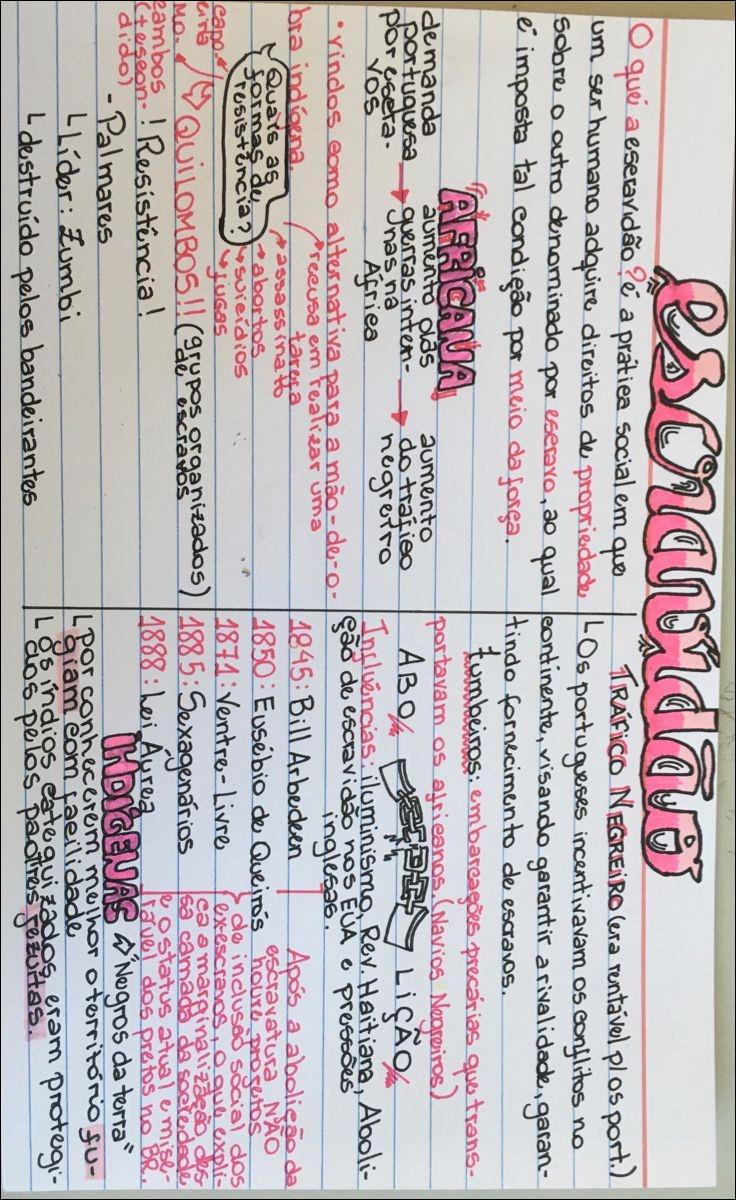 escravidão
O que é a escravidão? é a prática social em que
um ser humano adquire direitos de propriedade
sobre o outro denominado por escravo, ao qual
é imposta tal condição por meio da força.
AFRICANA
demanda portuguesa por escravos → aumento das guerras internas na África → aumento do tráfico negreiro
• vindos como alternativa para a mão-de-o-
bra indígena.
Quais as
formas de
resistência?
→ recusa em realizar uma
tarefa
→ assassinato
→ abortos
→ suicídios
→ fugas
⇨ QUILOMBOS!! (grupos organizados
de escravos)
! Resistência!
- Palmares
└ Líder: Zumbi
└ destruído pelos bandeirantes
TRÁFICO NEGREIRO (era rentável p/ os port.)
└ Os portugueses incentivavam os conflitos no
continente, visando garantir a rivalidade, garan-
tindo fornecimento de escravos.
tumbeiros: embarcações precárias que trans-
portavam os africanos. (Navios Negreiros)
ABO LIÇÃO
Influências: iluminismo, Rev. Haitiana, Aboli-
ção de escravidão nos EUA e pressões
inglesas.
1845: Bill Arbedeen
1850: Eusébio de Queirós
1871: Ventre-Livre
1885: Sexagenários
1888: Lei Áurea
Após a abolição da
escravatura NÃO
houve projetos
de inclusão social dos
exescravos, o que expli-
ca a marginalização des
sa camada da sociedade
e o status atual e mise-
rável dos pretos no BR.
INDÍGENAS ⇨ "Negros da terra"
└ por conhecerem melhor o território fu-
giam com facilidade
└ Os índios catequizados eram protegi-
dos pelos padres jezuítas.